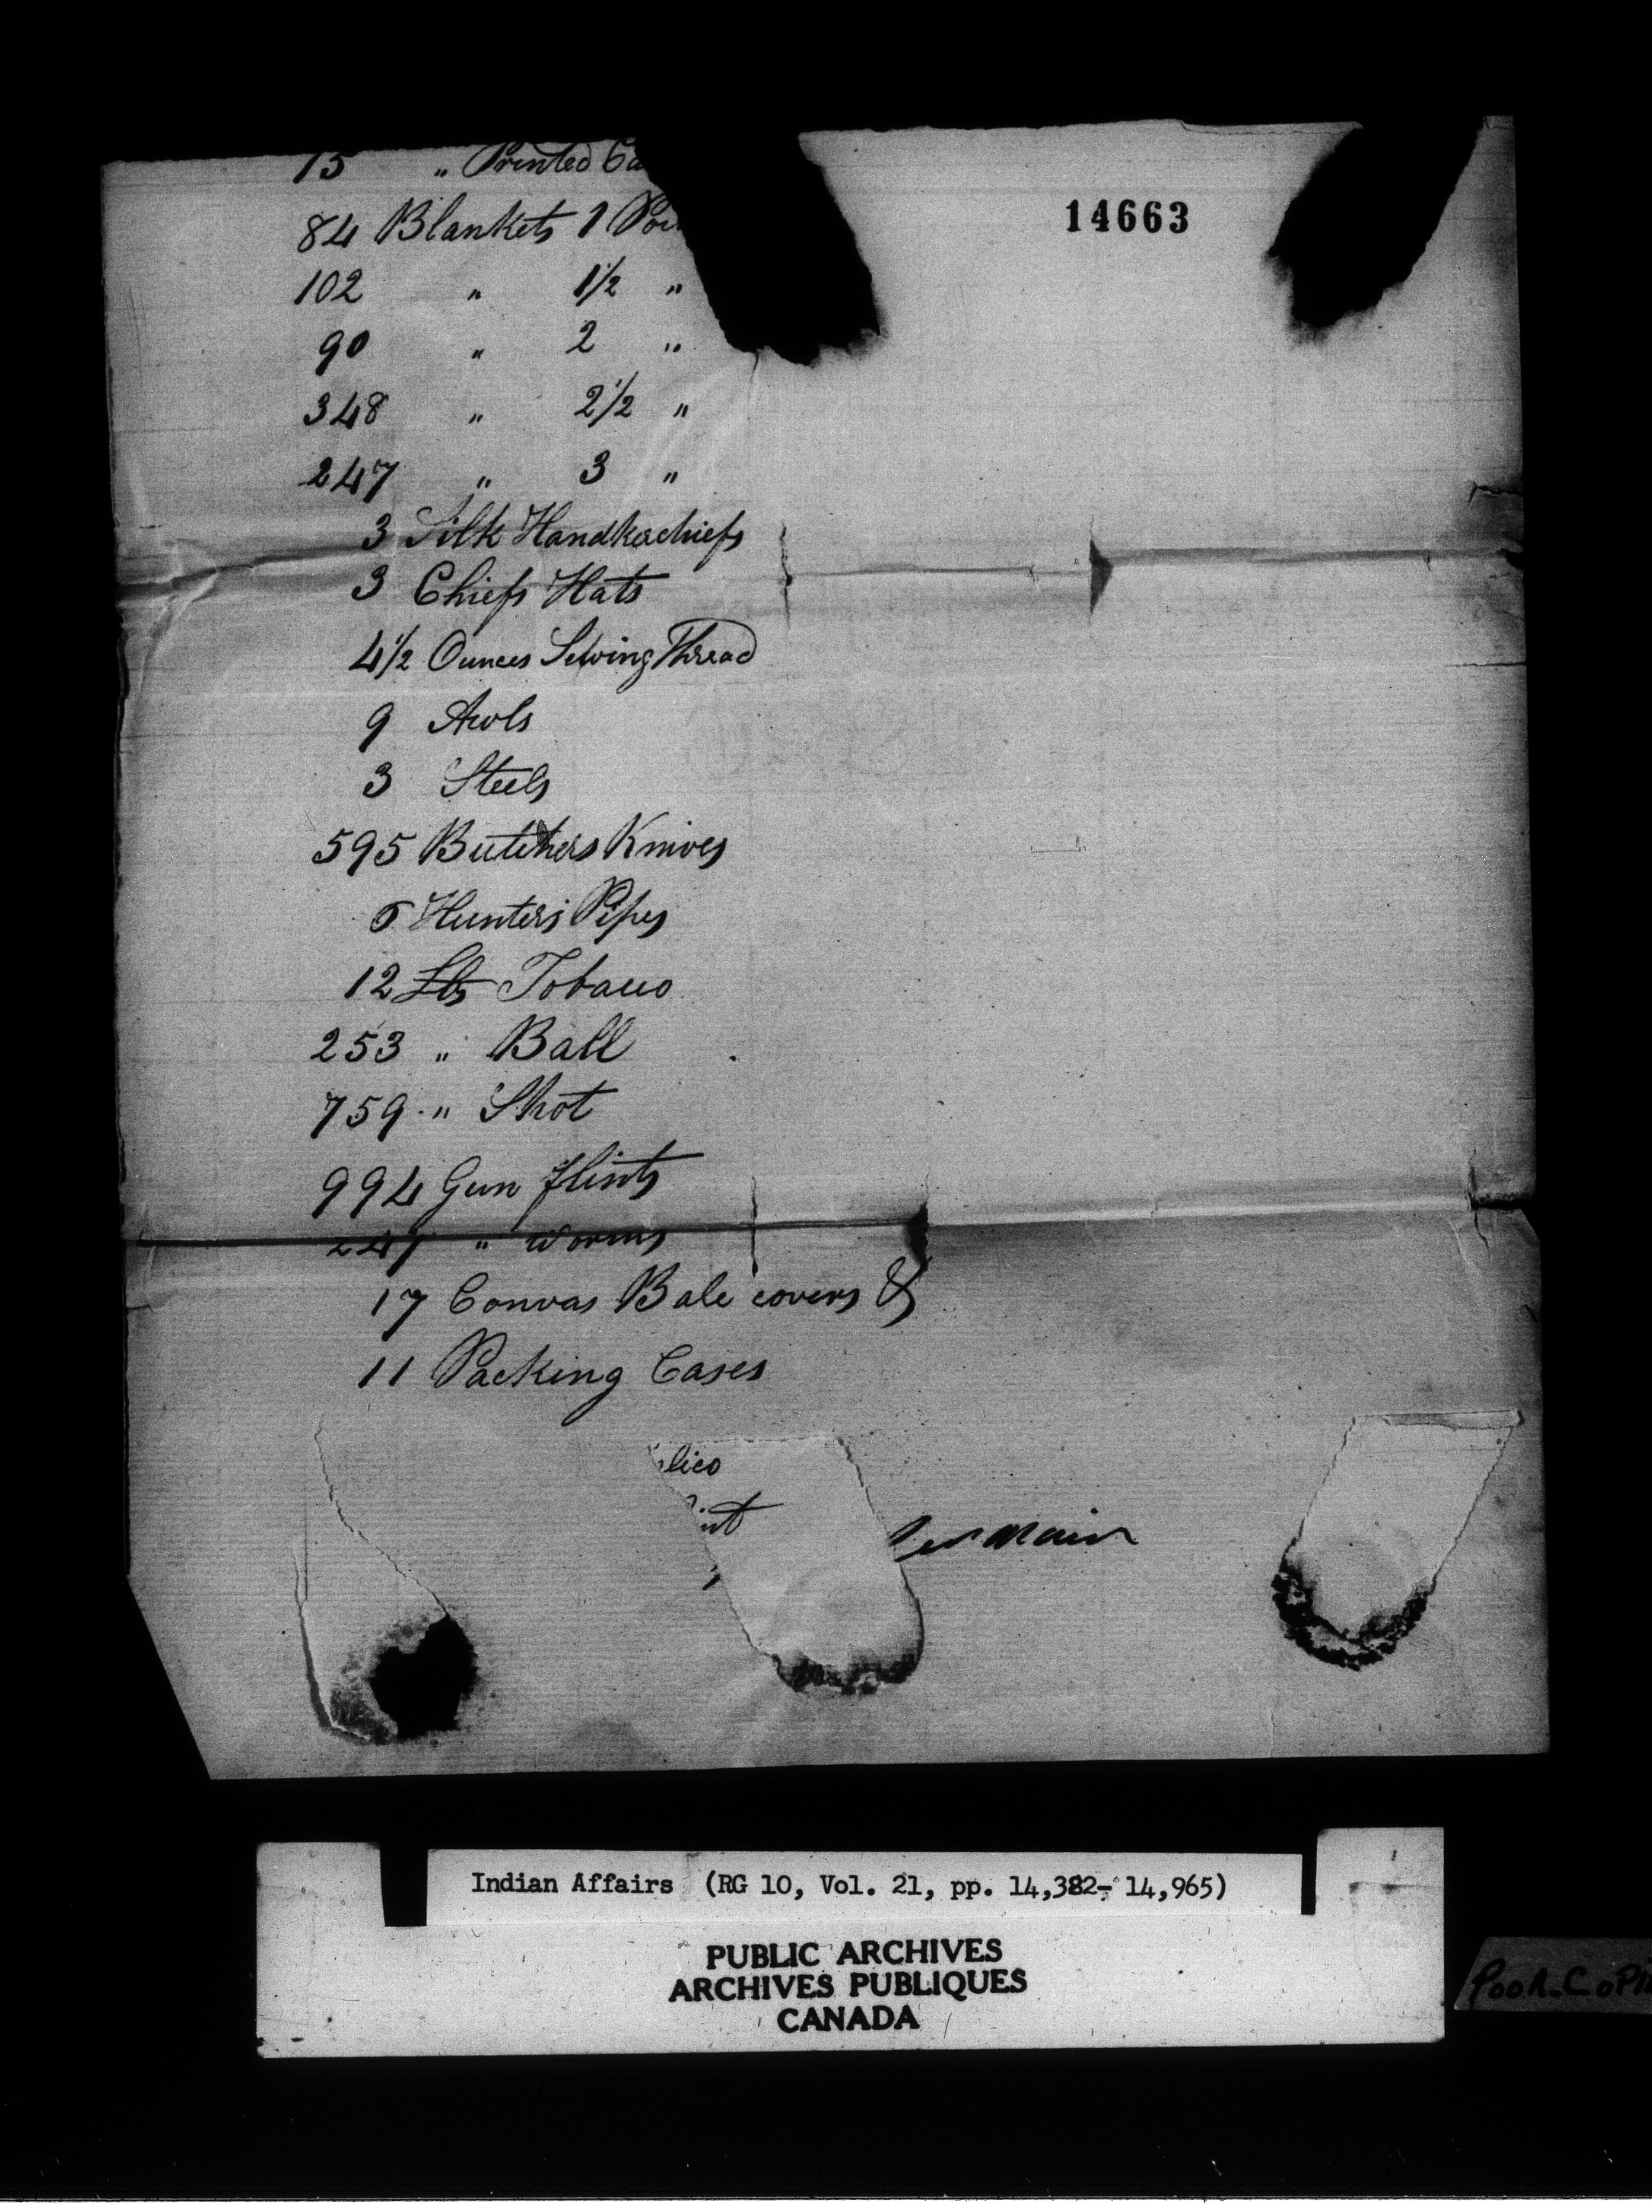 15 " Printed Ca
14663
84 Blankets 1 Poi
102 " 1½ "
90 " 2 "
348 " 2½ "
247 " 3 "
3 Silk Handkerchiefs
3 Chiefs Hats
4½ Ounces Sewing Thread
9 Awls
3 Steels
595 Butchers Knives
6 Hunters Pipes
12 Lbs Tobacco
253 " Ball
759 " Shot
994 Gun flints
247 " Worms
17 Canvas Bale covers &
11 Packing Cases
lico
int
Indian Affairs (RG 10, Vol. 21, pp. 14,382- 14,965)
PUBLIC ARCHIVES
ARCHIVES PUBLIQUES
CANADA
POOR COPI